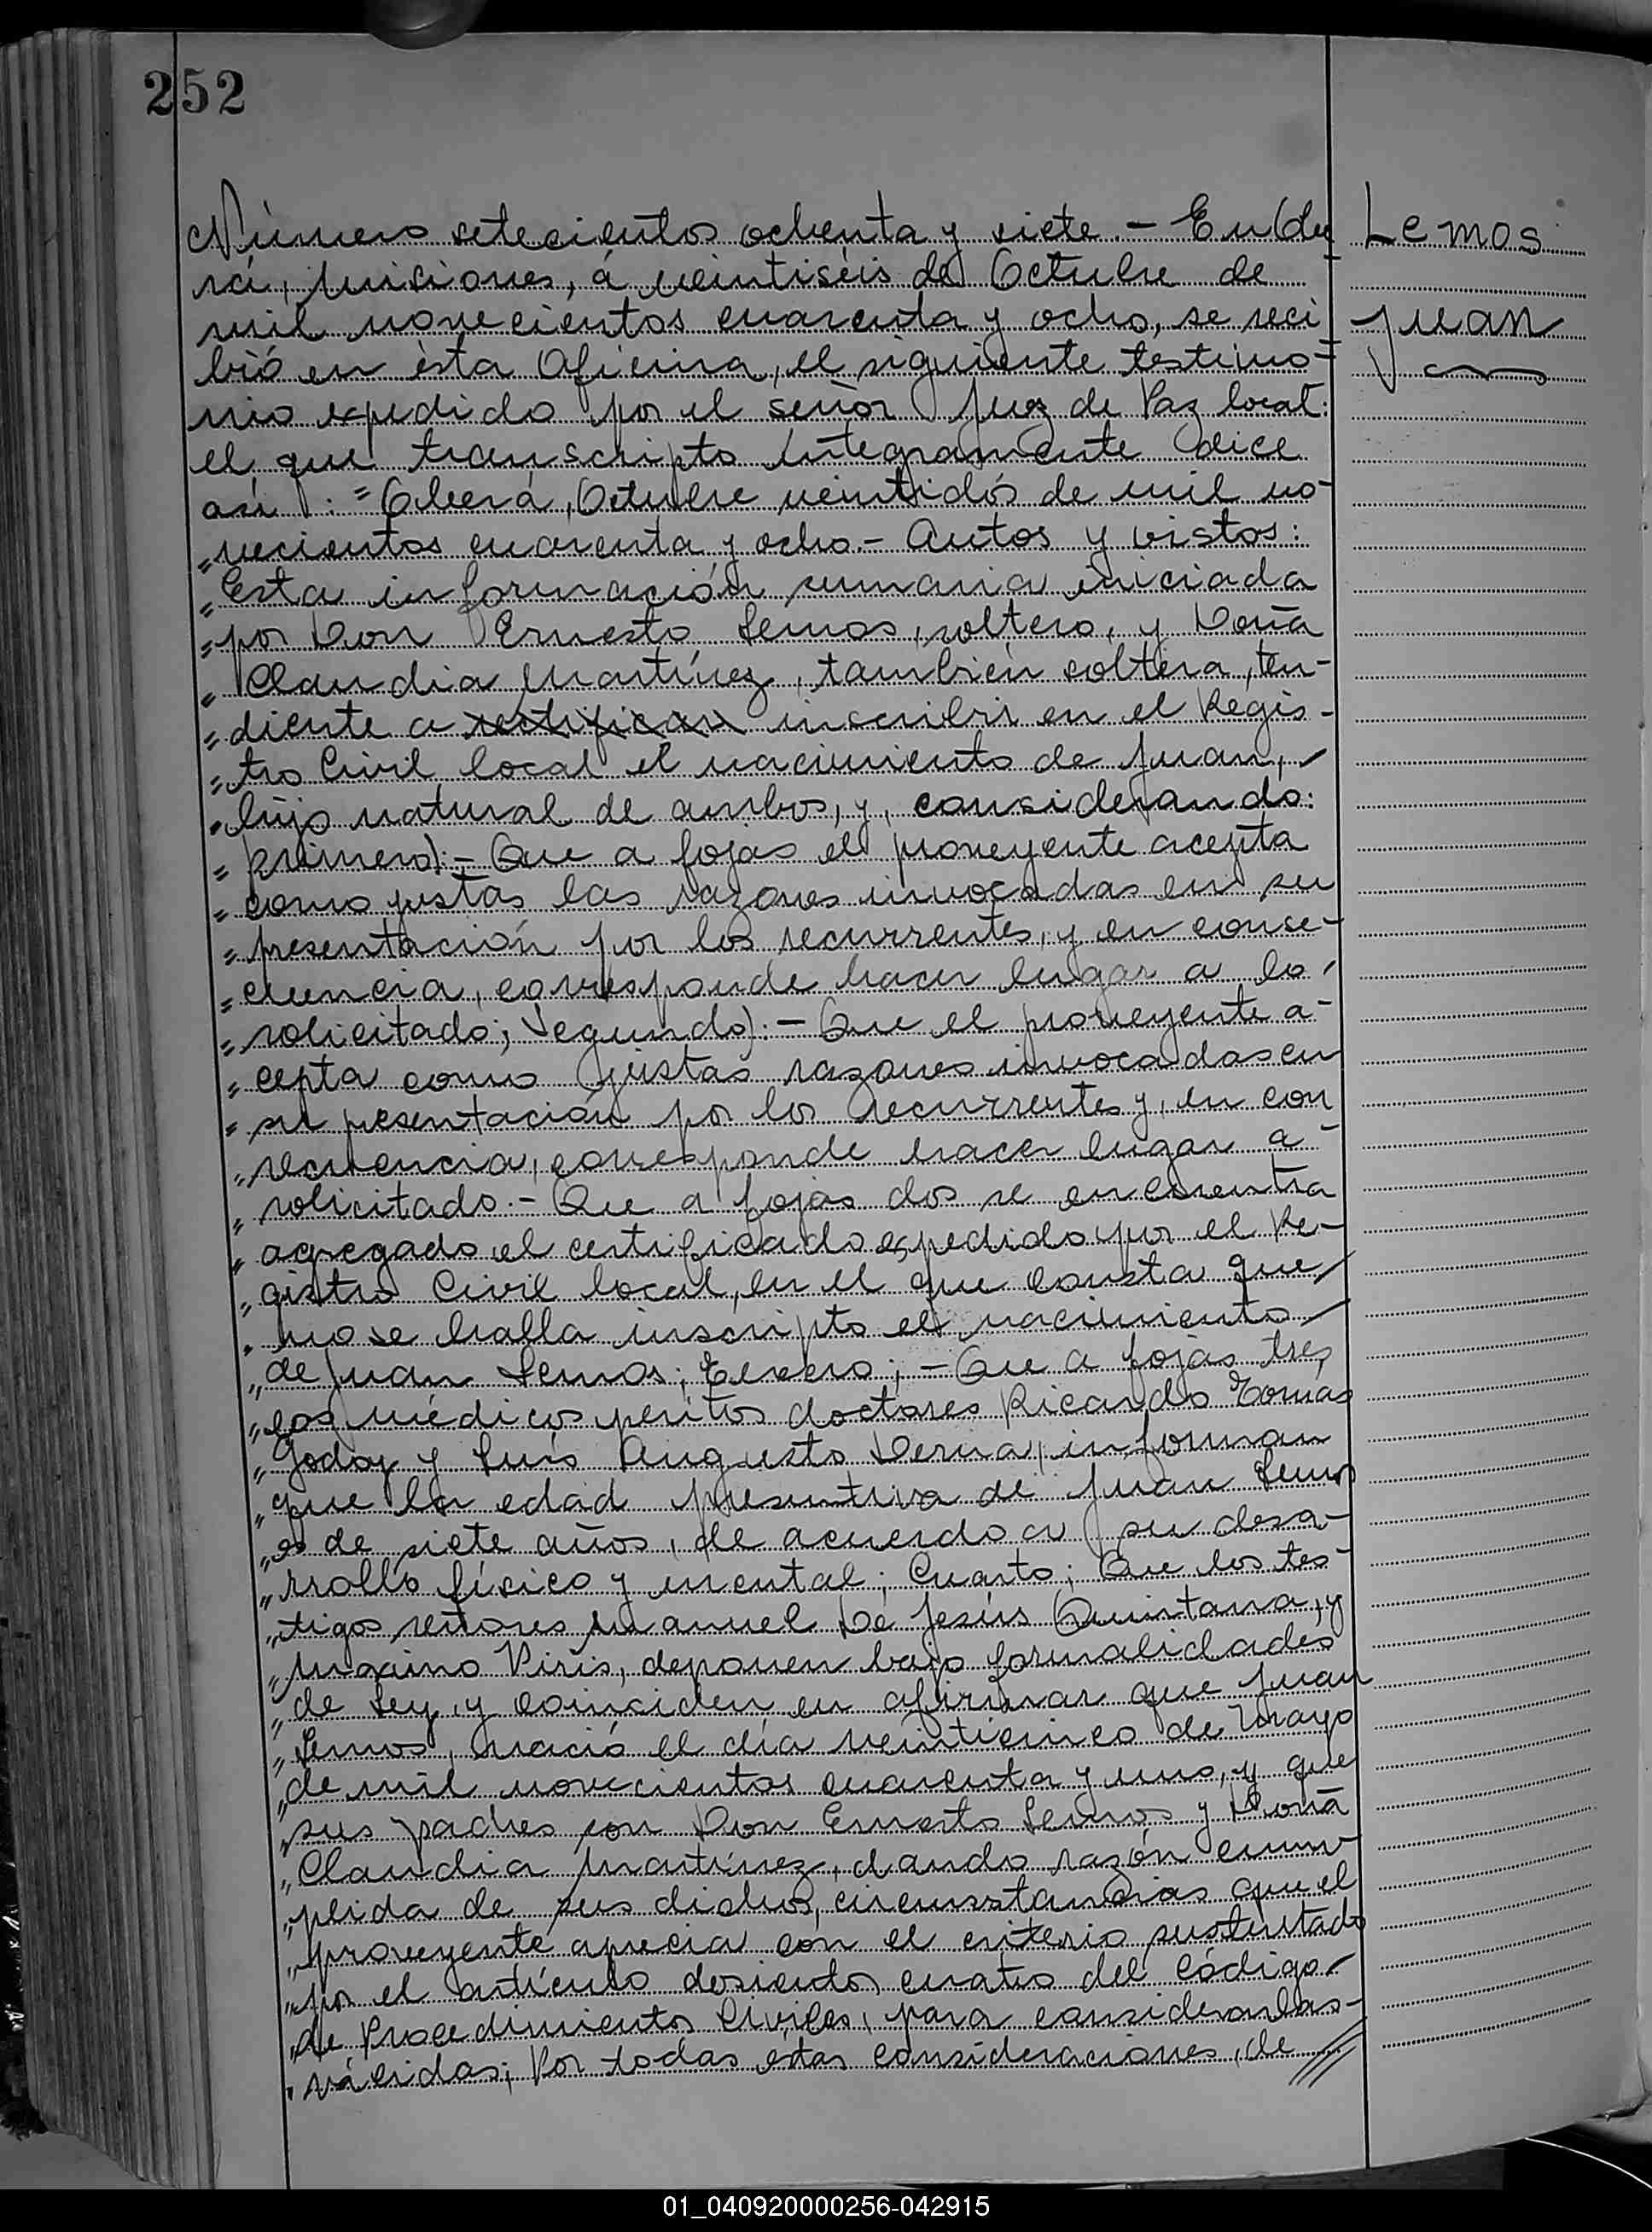 252
Número setecientos ochenta y siete.- En Obe
rá, Misiones, á veintiséis de Octubre de
mil novecientos cuarenta y ocho, se reci
bió en ésta Oficina, el siguiente testimo-
nio expedido por el señor Juez de Paz local:
el que transcripto íntegramente dice
así: "Oberá, Octubre veintidós de mil no-
"vecientos cuarenta y ocho.- Autos y vistos:
"Esta información sumaria iniciada
"por Don Ernesto Lemos, soltero, y Doña
"Claudia Martínez, también soltera, ten-
"diente a rectificar inscribir en el Regis-
"tro Civil local el nacimiento de Juan,
"hijo natural de ambos, y, considerando:
"primero):- Que a fojas el proveyente acepta
"como justas las razones invocadas en su
"presentación por los recurrentes, y en conse-
"cuencia, corresponde hacer lugar a lo
"solicitado; Segundo):- Que el proveyente a-
"cepta como justas razones invocadas en
"su presentación por los recurrentes y, en con
"secuencia, corresponde hacer lugar a-
"solicitado.- Que a fojas dos se encuentra
"agregado el certificado expedido por el Re-
"gistro Civil local, en el que consta que
"no se halla inscripto el nacimiento
"de Juan Lemos; Tercero;- Que a fojas tres
"los médicos peritos doctores Ricardo Tomás
"Godoy y Luis Augusto Derna, informan
"que la edad presuntiva de Juan Lemos
"es de siete años, de acuerdo a su desa-
"rrollo físico y mental; Cuarto; Que los tes-
"tigos señores Manuel De Jesús Quintana, y
"Máximo Piris, deponen bajo formalidades
"de Ley, y coinciden en afirmar que Juan
"Lemos, nació el día veinticinco de Mayo
"de mil novecientos cuarenta y uno, y que
"sus padres son Don Ernesto Lemos y Doña
"Claudia Martínez, dando razón cum
"plida de sus dichos, circunstancias que el
"proveyente aprecia con el criterio sustentado
"por el artículo dosientos cuatro del Código
"de Procedimientos Civiles, para considerarlas-
"válidas; Por todas estas consideraciones, de
Lemos
Juan
01_040920000256-042915